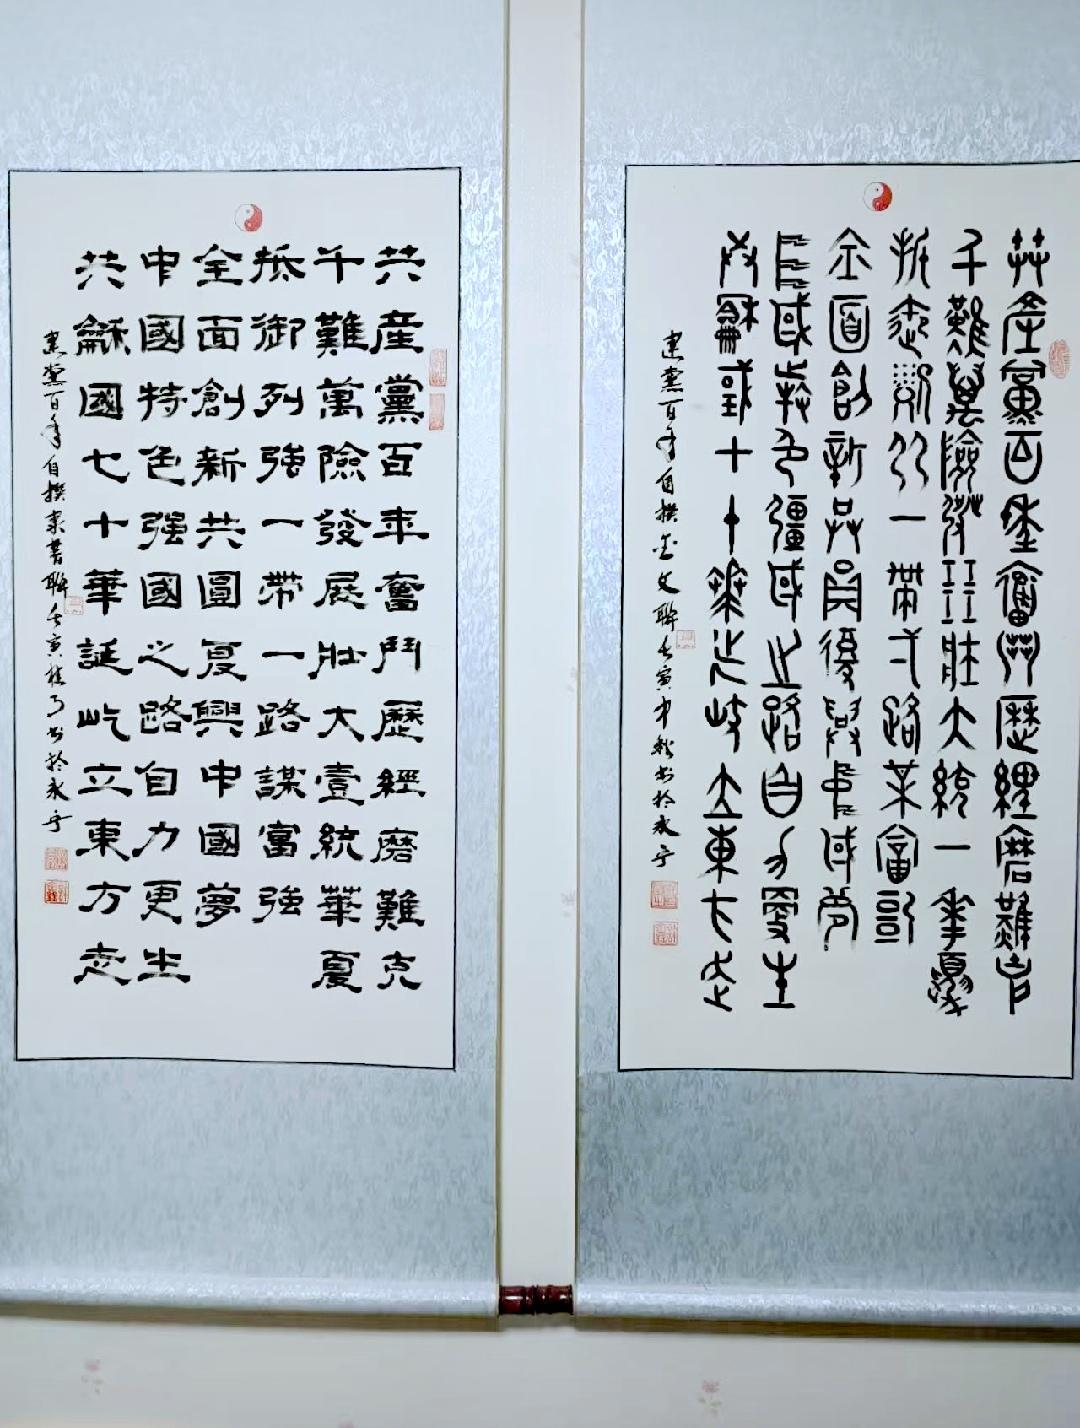 共產黨百年奮鬥歷經磨難
千難萬險發展壯大統一華夏
抵御列強一帶一路謀富強
全面創新共圓復興中國夢
中國特色彊國之路自力更生
共龢國七十華誕屹立東方
建黨百年自撰金文聯壬寅中秋书於永寧
共產黨百年奮鬥歷經磨難克
千難萬險發展壯大壹統華夏
抵御列強一帶一路謀富強
全面創新共圓复興中國夢
中國特色强國之路自力更生
共龢國七十華誕屹立東方
建黨百年自撰隸書聯壬寅桂月书於永寧